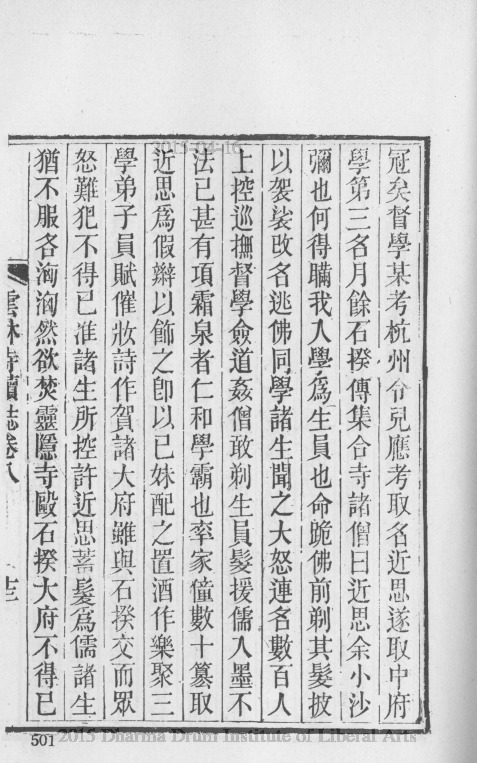 冠矣督學某考杭州令兒應考取名近思遂取中府
學第三名月餘石揆傳集合寺諸僧曰近思余小沙
彌也何得瞞我入學爲生員也命跪佛前剃其髮披
以袈裟改名逃佛同學諸生聞之大怒連名數百人
上控巡撫督學僉道姦僧敢剃生員髮援儒入墨不
法已甚有項霜泉者仁和學霸也率家僮數十篡取
近思爲假辮以飾之卽以已妹配之置酒作樂聚三
學弟子員賦催妝詩作賀諸大府雖與石揆交而眾
怒難犯不得已准諸生所控許近思蓄髮爲儒諸生
猶不服各洶洶然欲焚靈隱寺毆石揆大府不得已
雲林寺續誌卷八
十三
2015-04-16
501
2015 Dharma Drum Institute of Liberal Arts